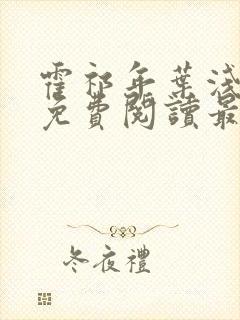 霍祁年葉淺
免費閱讀最
冬夜禮